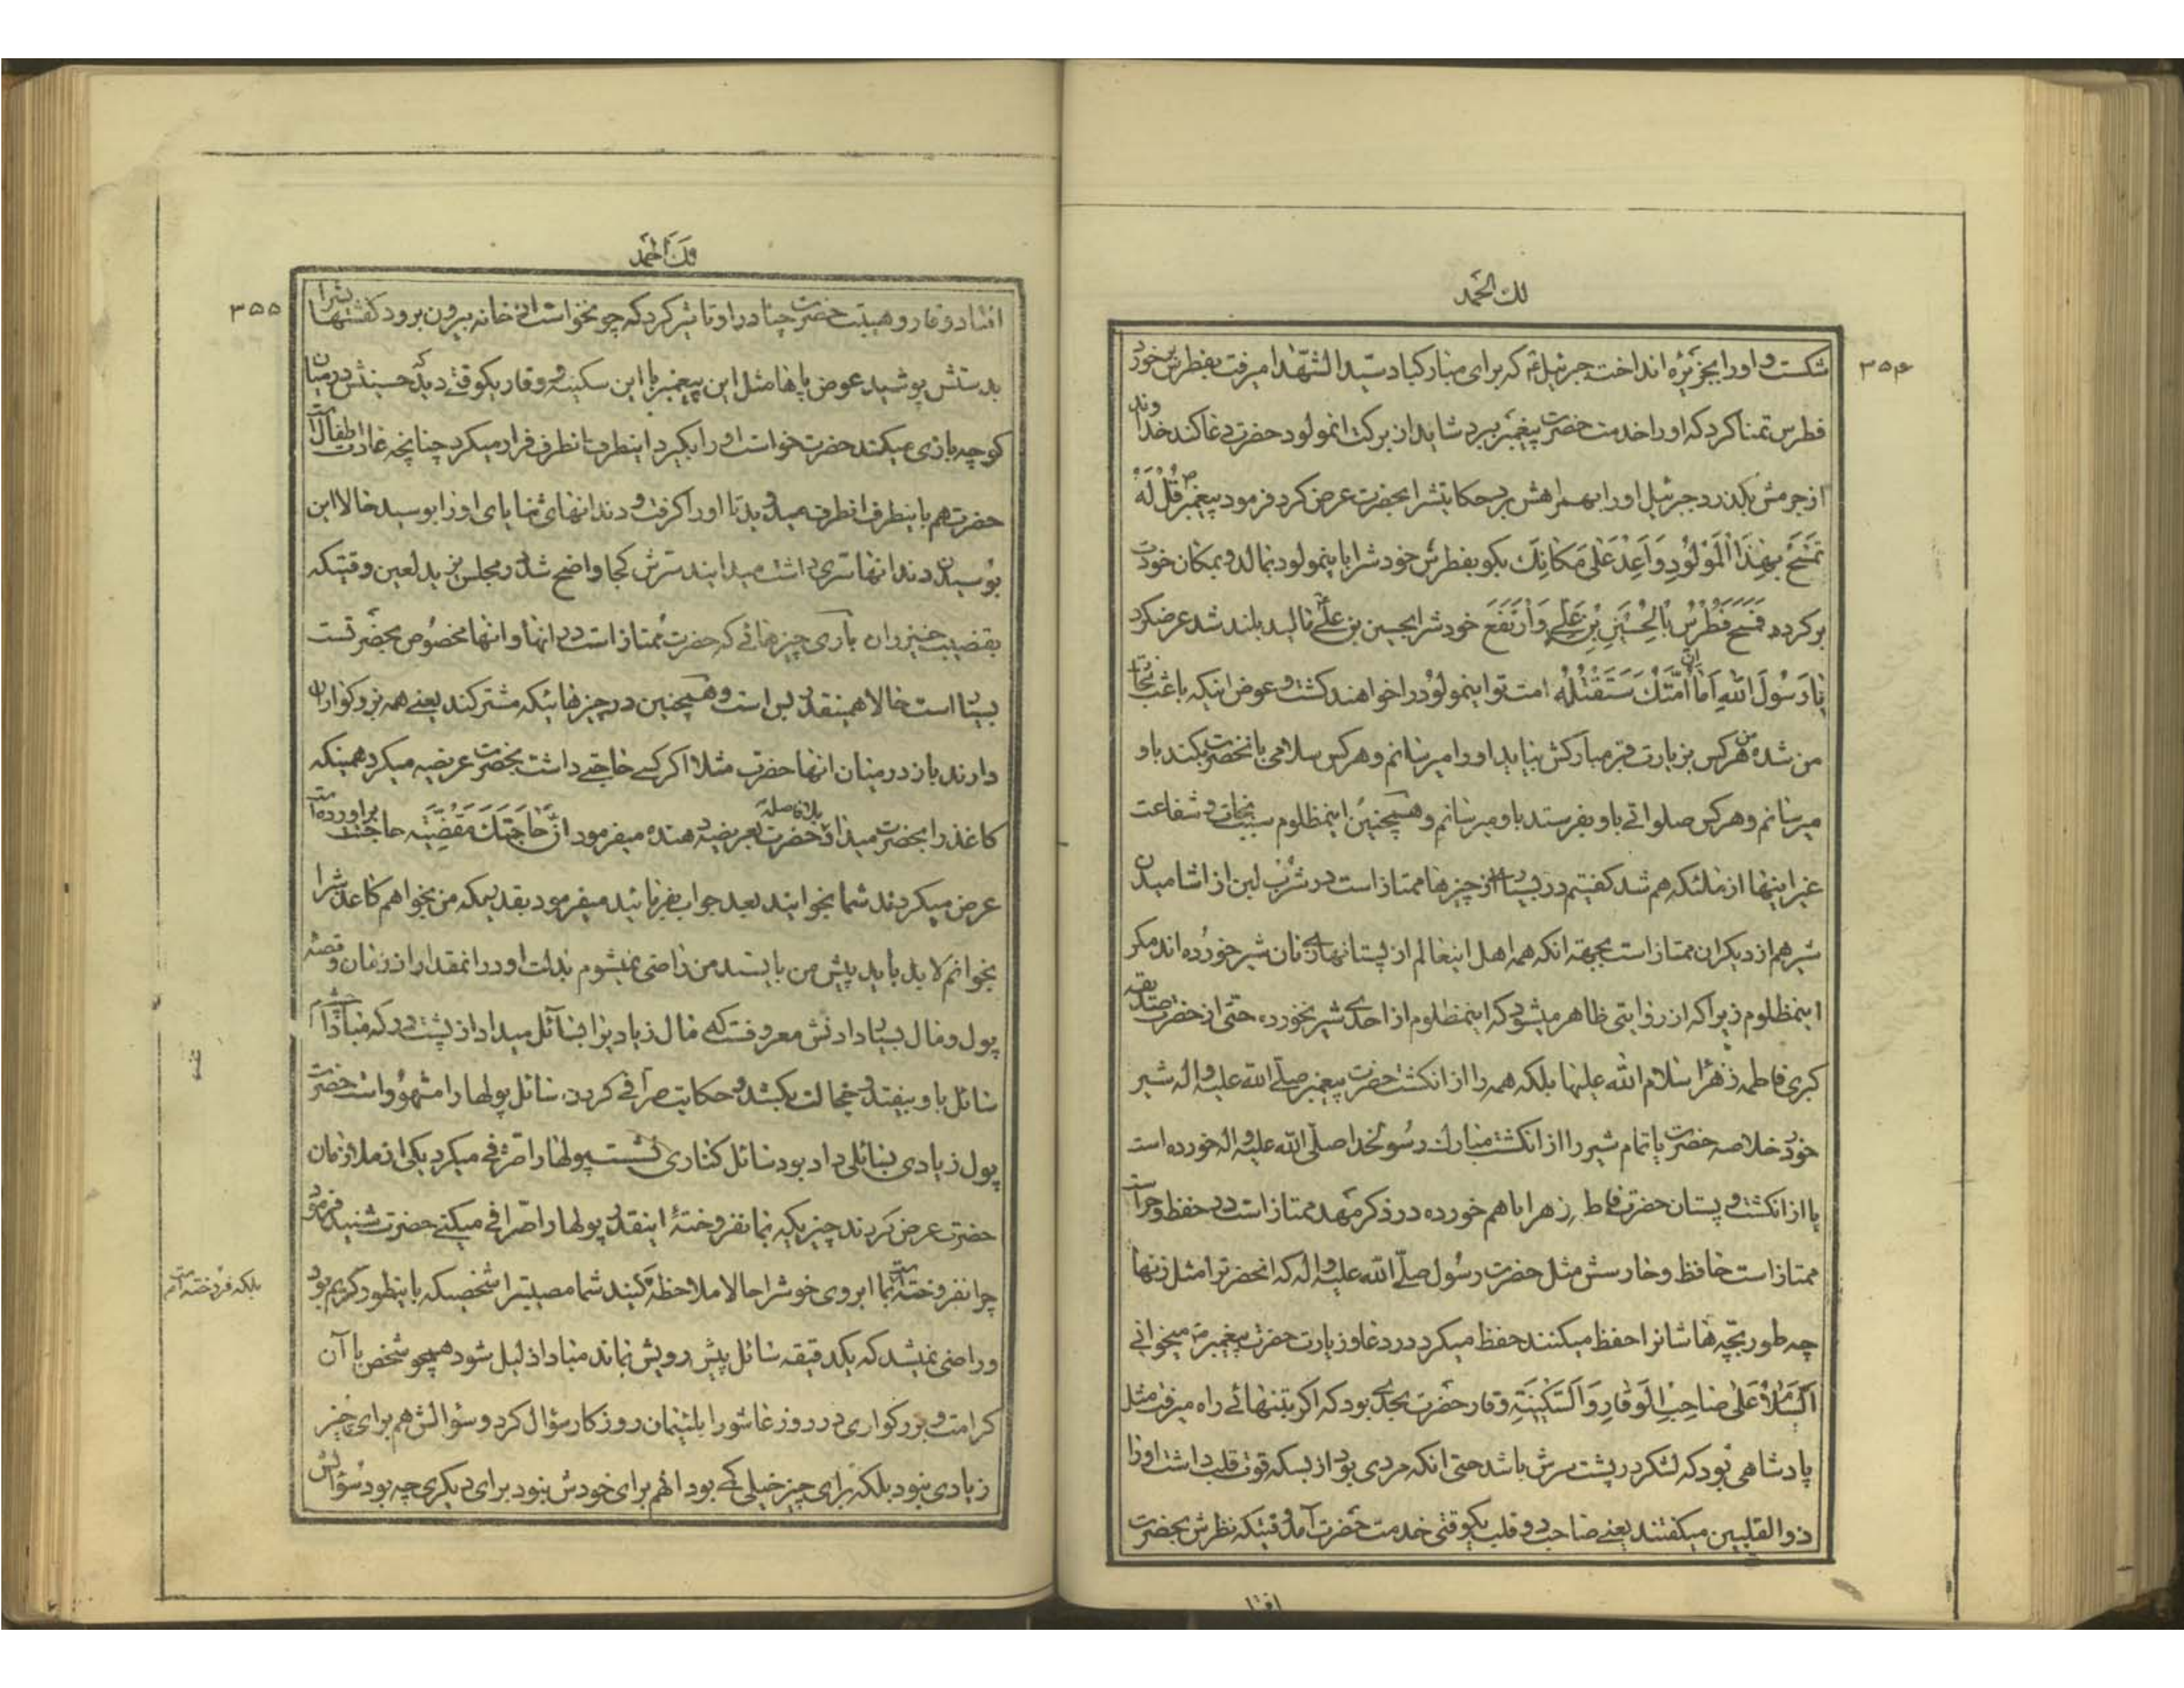 لك الحمد
۳۵۴
شکست و اورا بجزیره انداخت جبرئیل ع که برای مبارکباد سیدالشهدا میرفت بفطرس برخورد
فطرس تمنا کرد که اورا خدمت حضرت پیغمبر ببرد شاید از برکت انمولود حضرت دعا کند خداوند
از جرمش بگذرد جبرئیل اورا بهمراهش برد حکایتشرا بحضرت عرض کرد فرمود پیغمبر ص قُلْ لَهُ
تَمَسَّحْ بِهٰذَا الْمَوْلُودِ وَاَعِدْ عَلٰی مَکَانِكَ بگو بفطرس خودشرا باینمولود بمالد و بمکان خودت
برگرد فَمَسَحَ فُطْرُسُ بِالْحُسَیْنِ بْنِ عَلِیٍّ وَارْتَفَعَ خودشرا بحسین بن علی مالید بلند شد عرضکرد
یَا رَسُولَ اللهِ اَمَا اِنَّ اُمَّتَكَ سَتَقْتُلُهُ امت تو اینمولود را خواهند کشت و عوض اینکه باعث نجات
من شده من هرکس بزیارت قبر مبارکش بیاید اورا میرسانم و هرکس سلامی بانحضرت بکند باو
میرسانم و هرکس صلواتی باو بفرستد باو میرسانم و همچنین اینمظلوم سبب نجات و شفاعت
غیر اینها از ملئکه هم شد گفتیم در بسیاری از چیزها ممتاز است در شرب لبن از اشامیدن
شیر هم از دیگران ممتاز است بجهة انکه همه اهل اینعالم از پستانهای زنان شیر خورده اند مگر
اینمظلوم زیرا که از روایتی ظاهر میشود که اینمظلوم از احدی شیر نخورده حتی از حضرت صدیقه
کبری فاطمه زهرا سلام الله علیها بلکه همه را از انگشت حضرت پیغمبر صلی الله علیه و اله شیر
خورد خلاصه حضرت یا تمام شیر را از انگشت مبارك رسولخدا صلی الله علیه و اله خورده است
یا از انگشت و پستان حضرت فاطمه زهرا با هم خورده در ذکر مهد ممتاز است در حفظ و حراست
ممتاز است حافظ و حارسش مثل حضرت رسول صلی الله علیه و اله که انحضرترا مثل زنها
چه طور بچه هاشانرا حفظ میکنند حفظ میکرد در دعا و زیارت حضرت پیغمبر ص میخوانی
اَلسَّلَامُ عَلٰی صَاحِبِ الْوَقَارِ وَالسَّکِینَةِ وقار حضرت بحدی بود که اگر بتنهائی راه میرفت مثل
پادشاهی بود که لشکر در پشت سرش باشد حتی انکه مردی بود از بسکه قوت قلب داشت اورا
ذو القلبین میگفتند یعنی صاحب دو قلب یکوقتی خدمت حضرت آمد وقتیکه نظرش بحضرت
افتا
ولك الحمد
۳۵۵
افتاد وقار و هیبت حضرت چنان در او تاثیر کرد که چو نخواست از خانه بیرون برود کفشهایشرا
بدستش پوشید عوض پاها مثل این پیغمبر با این سکینه و وقار یکوقتی دید که حسینش در میان
کوچه بازی میکند حضرت خواست اورا بگیرد اینطرف انطرف فرار میکرد چنانچه عادت اطفال است
حضرت هم باینطرف انطرف میدوید تا اورا گرفت و دندانهای ثنایای اورا بوسید حالا این
بوسیدن دندانها سرّی داشت میدانید سرّش کجا واضح شد در مجلس یزید لعین وقتیکه
بقضیب خیزران باری چیزهائی که حضرت ممتاز است در انها و انها مخصوص بحضرتست
بسیار است حالا همینقدر بس است و همچنین در چیزهائیکه مشترکند یعنی همه بزرگواران
دارند باز در میان انها حضرت مثلا اگر کسی حاجتی داشت بحضرت عریضه میکرد همینکه
کاغذ را بحضرت میداد حضرت بلافاصله بعریضه دهنده میفرمود اِنَّ حَاجَتَكَ مَقْضِیَّه حاجتت براورده است
عرض میکردند شما بخوانید بعد جواب بفرمائید میفرمود بقدریکه من بخواهم کاغذشرا
بخوانم لابد باید پیش من بایستد من راضی نمیشوم بذلت او در انمقدار از زمان و قصه
پول و مال بسیار دادنش معروفست که مال زیادیرا بسائل میداد از پشت در که مبادا چشم
سائل باو بیفتد و خجالت بکشد و حکایت صرافی کردن سائل پولها را مشهور است حضرت
پول زیادی بسائلی داد بود سائل کناری نشست پولها را صرافی میکرد یکی از ملازمان
حضرت عرض کردند چیزیکه بما نفروختهٔ اینقدر پولها را صرافی میکنی حضرت شنید فرمود
چرا نفروخته است بما ابروی خوشرا حالا ملاحظه کنید شما مصیبترا شخصیکه باینطور کریم بود
بلکه فروخته است
و راضی نمیشد که یکدقیقه سائل پیش رویش نماند مبادا ذلیل شود همچو شخص با آن
کرامت و بزرگواری در روز عاشورا بلئیمان روزگار سؤال کرد و سؤالش هم برای چیز
زیادی نبود بلکه برای چیز خیلی کمی بود انهم برای خودش نبود برای دیگری چه بود سؤالش